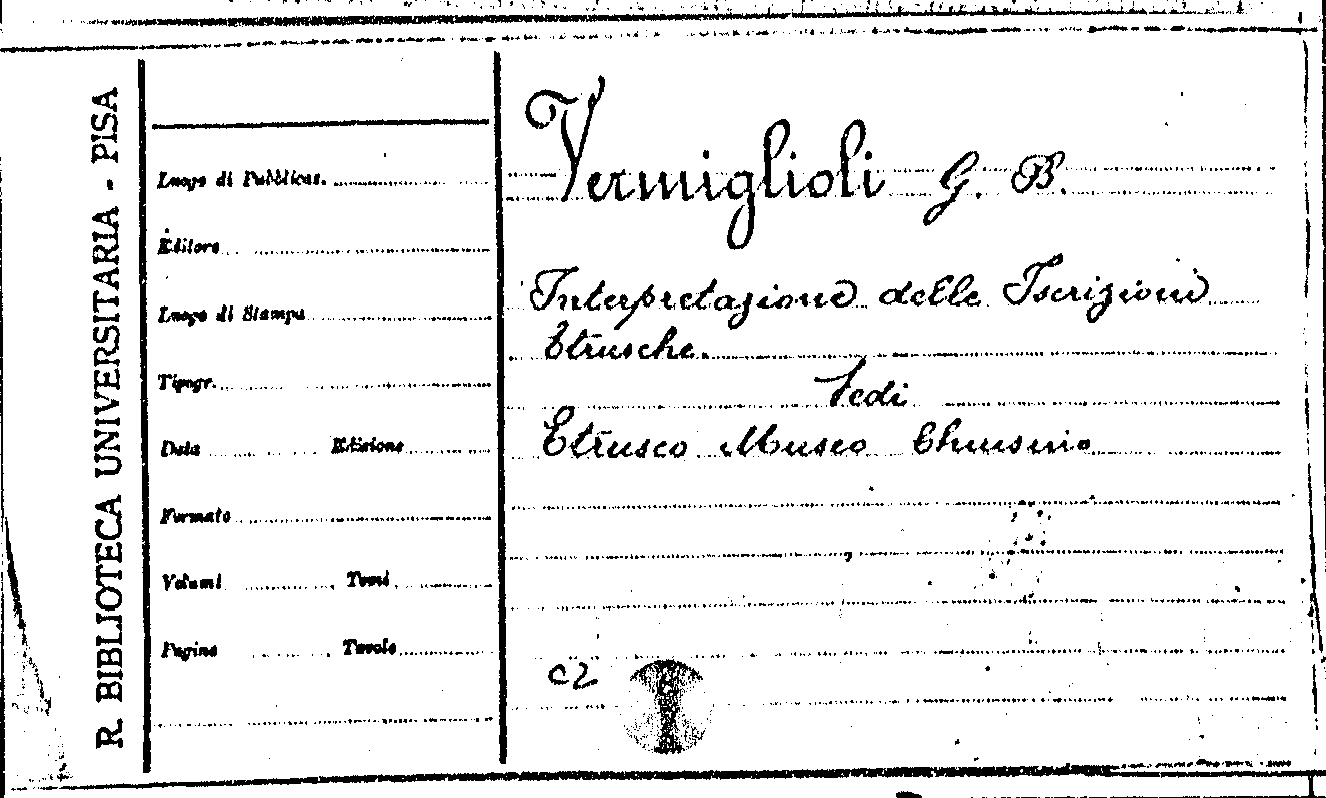 R. BIBLIOTECA UNIVERSITARIA - PISA
Luogo di Pubblicaz.
Editore
Luogo di Stampa
Tipogr.
Data Edizione
Formato
Volumi Tomi
Pagine Tavole
Vermiglioli G. B.
Interpretazione delle Iscrizioni
Etrusche.
Vedi
Etrusco Museo Chiusino
C2